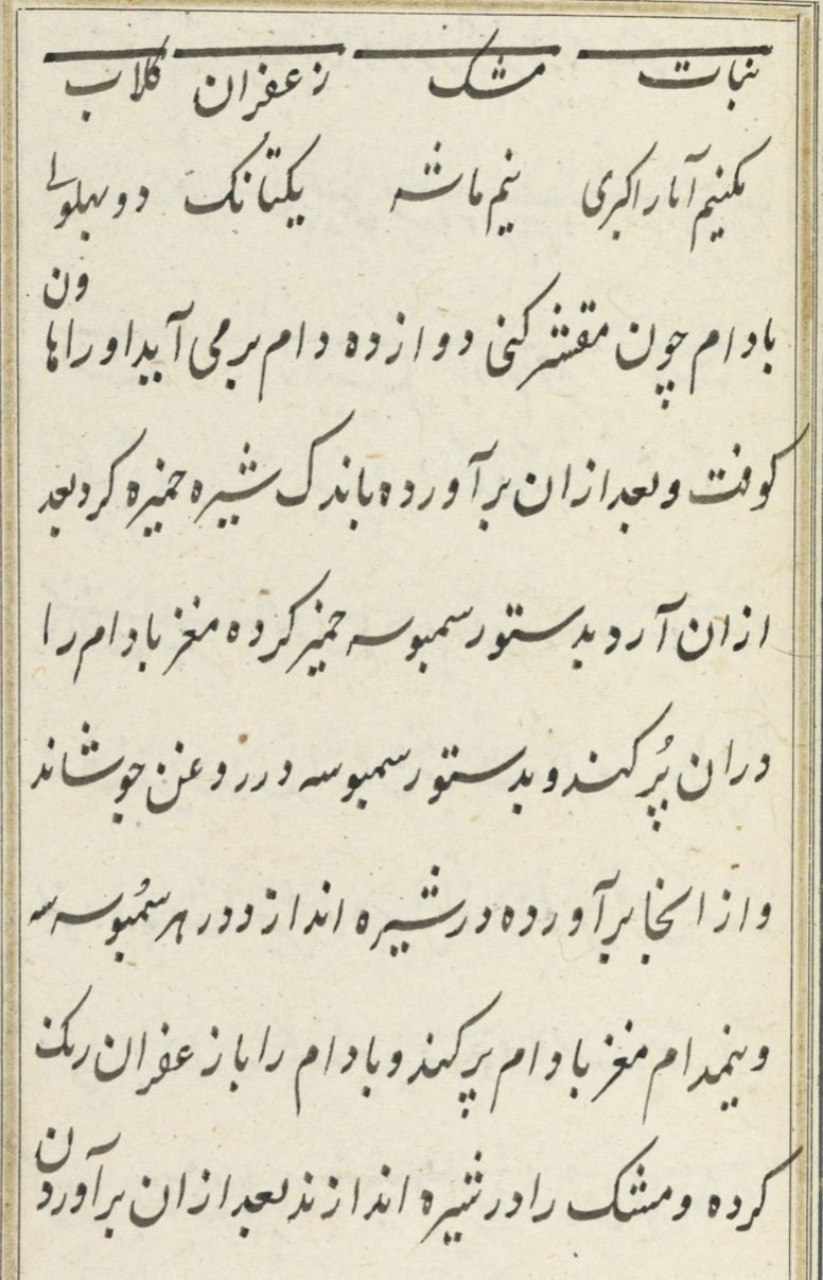 نبات مشک زعفران گلاب
یکنیم آثار اکبری نیم ماشه یکتانک دو بهلولی
بادام چون مقشر کنی دوازده دام برمی آید اورا هاون
کوفت و بعد ازان برآورده باندک شیره خمیره کرد بعد
ازان آرد بدستور سمبوسه خمیر کرده مغز بادام را
دران پُر کنند و بدستور سمبوسه در روغن جوشاند
و از انجا برآورده در شیره انداز و در هر سمُبوسه سه
و نیمدام مغز بادام پر کنند و بادام را با زعفران رنک
کرده و مشک را در شیره اندازند بعد ازان برآوردن